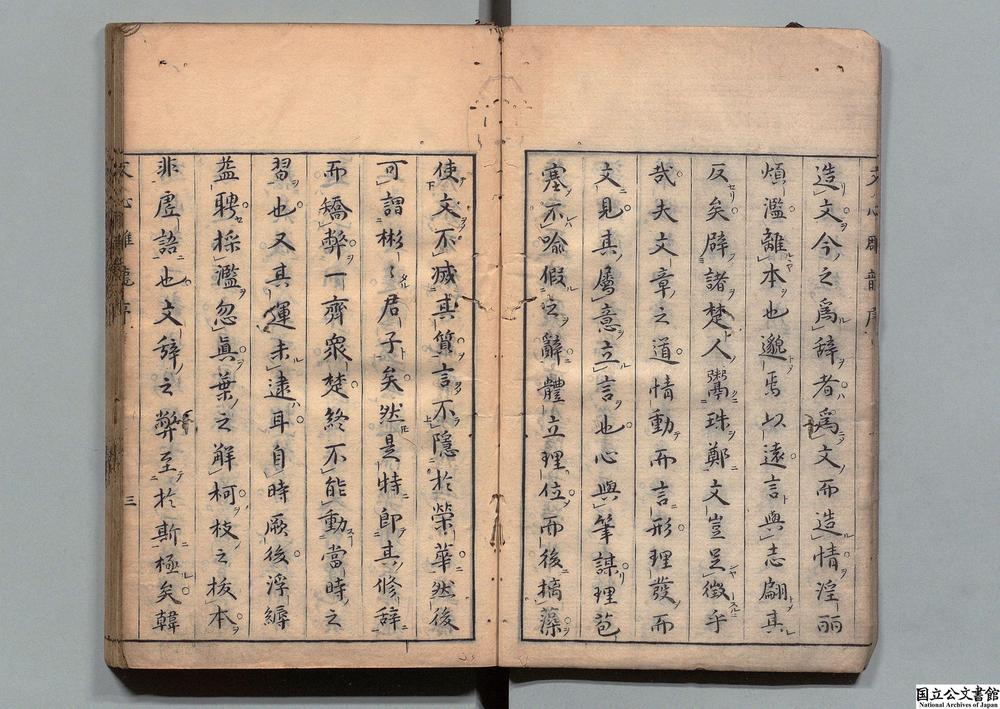 造文今之為辞者為文而造情淫丽
煩濫離本也邈焉以遠言與志翩其
反矣辟諸楚人鬻珠鄭文豈足徴乎
哉夫文章之道情動而言形理發而
文見其屬意立言也心與筆謀理苞
塞不喻假之辭體立理位而後摛藻
使文不滅其質言不隱於榮華然後
可謂彬〻君子矣然是特即其修辞
而矯弊一齊衆楚終不能動當時之
習也又其運未逮耳自時厥後浮縟
益聘採濫忽真葉之解柯枝之抜本
非虚語也文辞之弊至於斯極矣韓
三
国立公文書館
National Archives of Japan